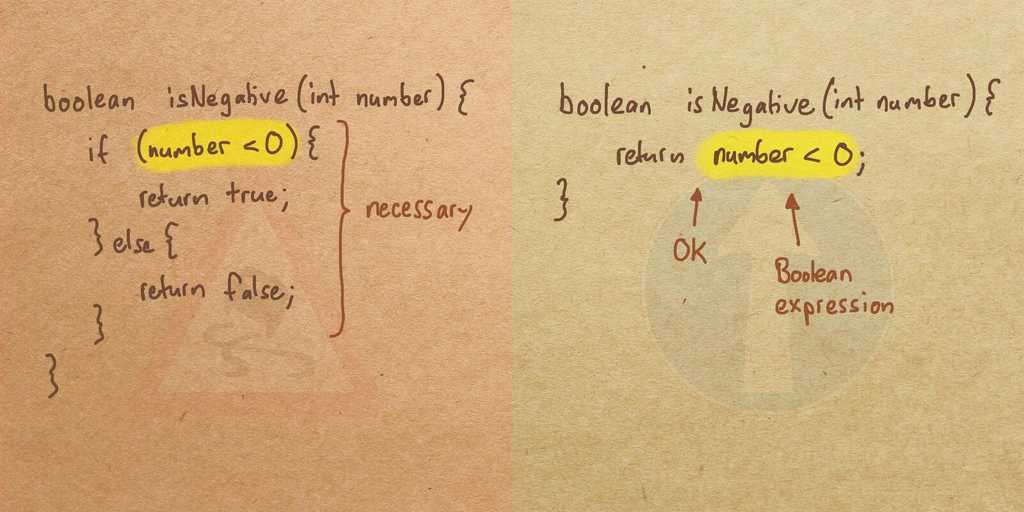 boolean isNegative(int number) {
if (number < 0) {
return true;
} else {
return false;
}
}
necessary
boolean isNegative(int number) {
return number < 0;
}
OK
Boolean
expression